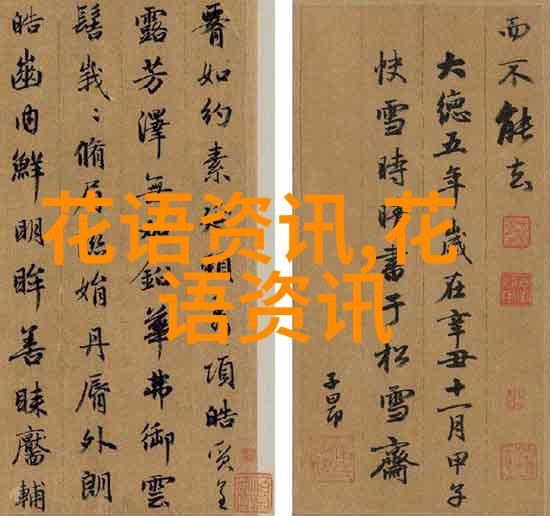 腰如約素延頸秀項皓質呈
露芳澤無加鉛華弗御雲
髻峩〻脩眉聯娟丹脣外朗
皓齒内鮮明眸善睞靨輔
而不能去
大德五年歲在辛丑十一月甲子
快雪時晴書于松雪齋
子昂
花语资讯,花
语资讯